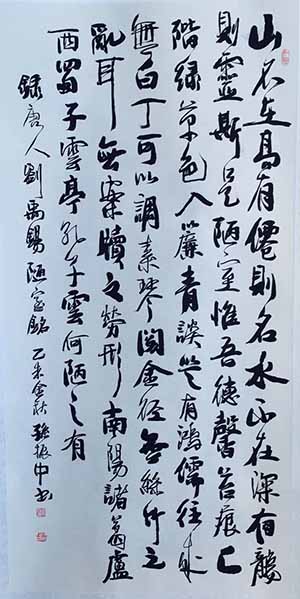 山不在高有僊則名水不在深有龍
則靈斯是陋室惟吾德馨苔痕上
階緑草色入簾青談笑有鴻儒往来
無白丁可以調素琴閲金經無絲竹之
亂耳無案牘之勞形南陽諸葛廬
西蜀子雲亭孔子雲何陋之有
録唐人劉禹錫陋室銘 乙未金秋 振中书